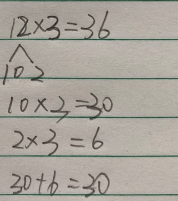 12×3=36
10 2
10×3=30
2×3=6
30+6=30